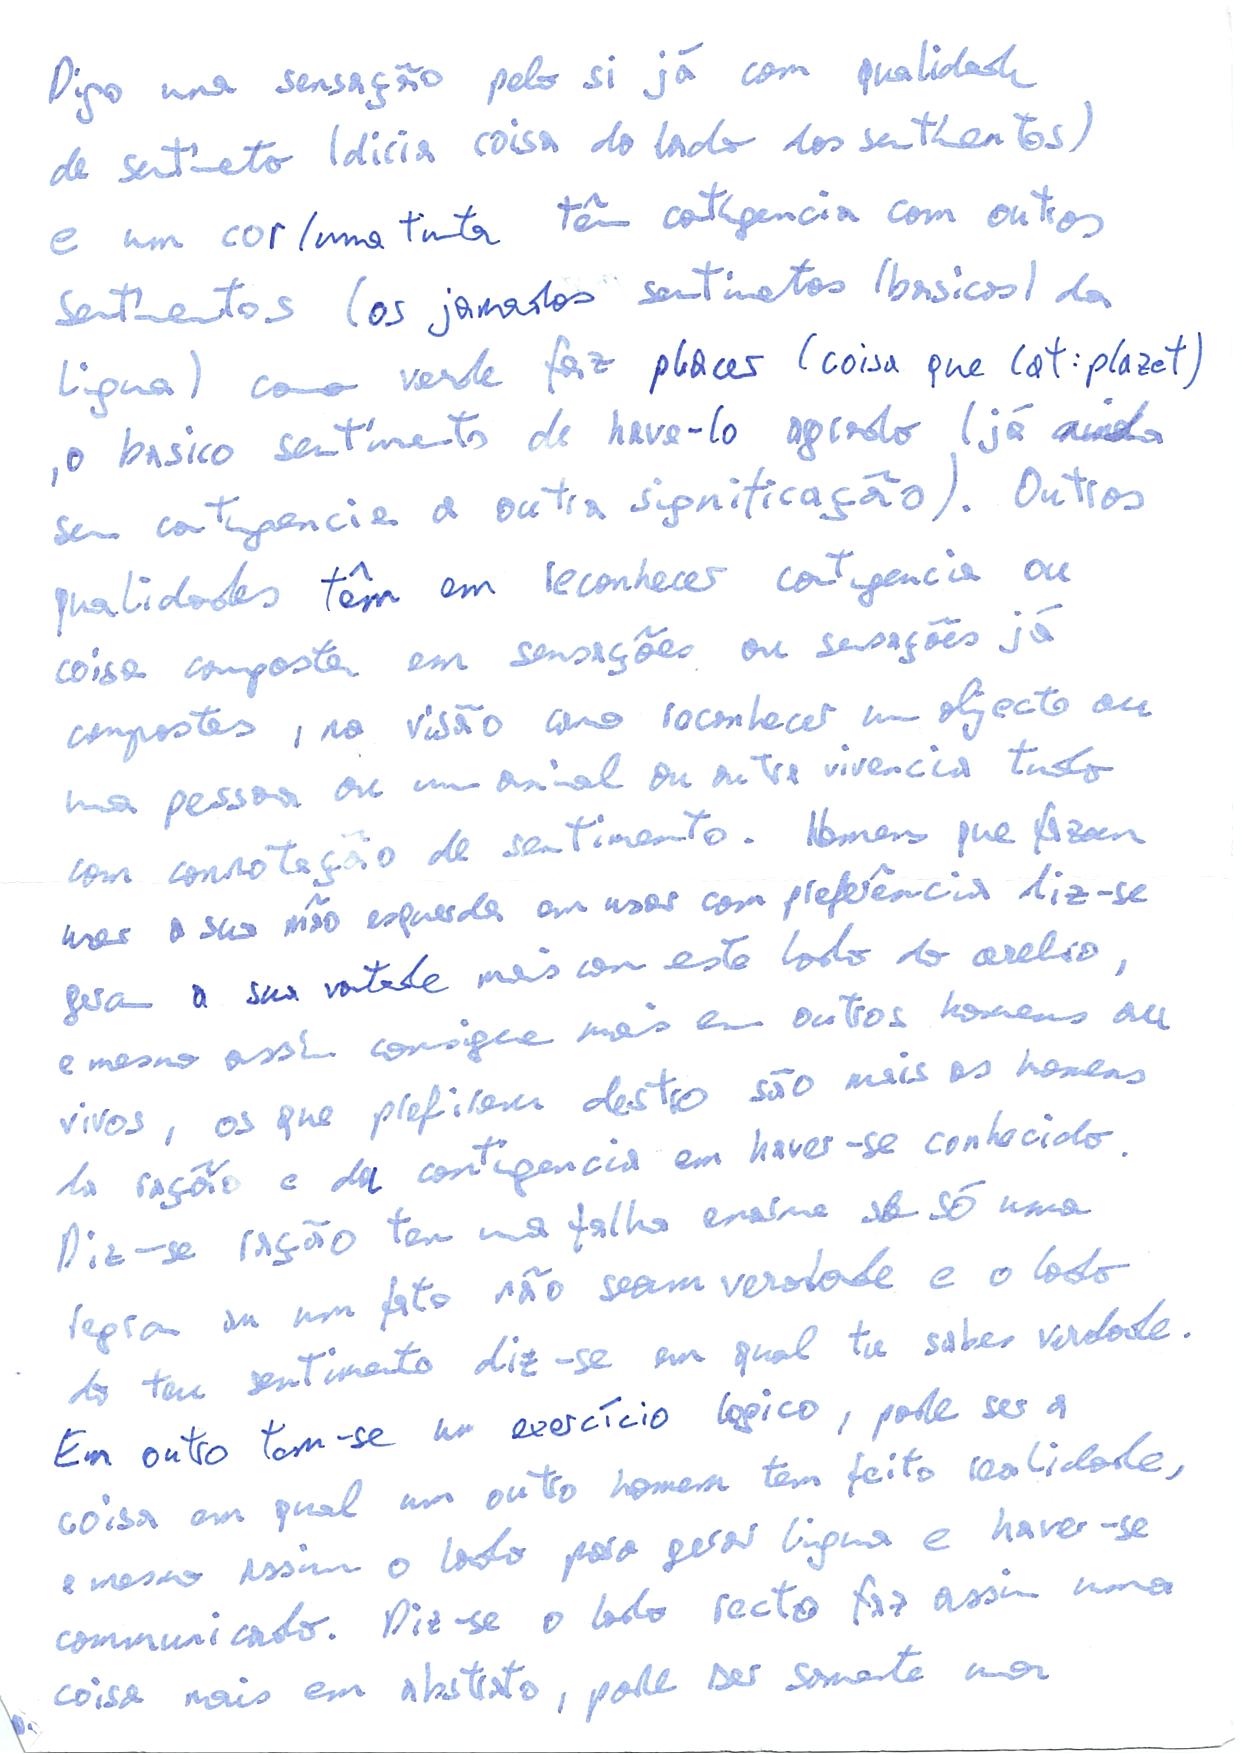 Digo uma sensação pelo si já com qualidade
de sentimeto (diria coisa do lado dos sentimentos)
e um cor/uma tinta têm cotigencia com outros
sentimentos (os jamados sentimetos (basicos) da
lingua) como verde faz placer (coisa que lat:plazet)
,o basico sentimento de have-lo agrado (já ainda
sem contigencia a outra significação). Outros
qualidades têm em reconhecer contigencia ou
coisa composta em sensações ou sensações já
compostas, na visão como reconhecer um objecto ou
uma pessoa ou um animal ou outra vivencia tudo
com connotação de sentimento. Homens que fazem
usar a sua mão esquerda em usar com preferência diz-se
geram a sua vontade mais com este lado do cerebro,
e mesmo assim consigue mais em outros homens ou
vivos, os que prefirem destro são mais os homens
da ração e da contigencia em haver-se conhecido.
Diz-se ração tem uma falha enorme se só uma
regra ou um fato não seam verdade e o lado
do teu sentimento diz-se em qual tu sabes verdade.
Em outro tem-se um exercício logico, pode ser a
coisa em qual um outro homem tem feito realidade,
e mesmo assim o lado para gerar lingua e haver-se
communicado. Diz-se o lado recto faz assim uma
coisa mais em abstrato, pode ser somente uma